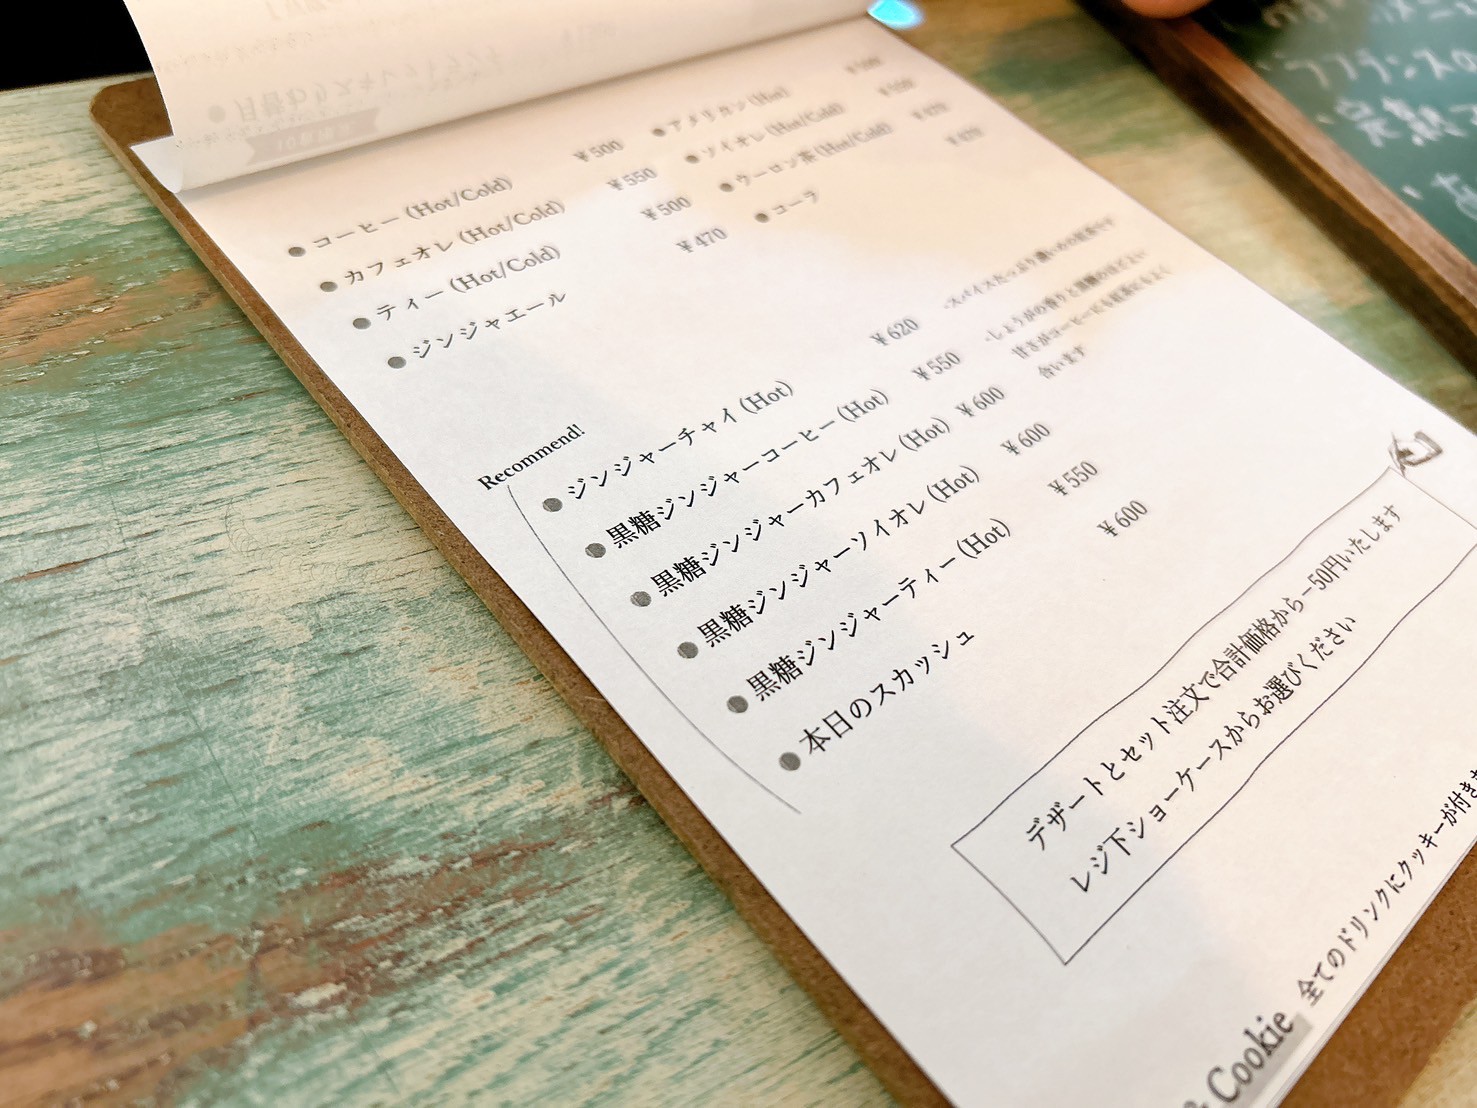 ● コーヒー (Hot/Cold) ¥500
● カフェオレ (Hot/Cold) ¥550
● ティー (Hot/Cold) ¥500
● ジンジャエール ¥470
● アメリカン (Hot)
● ソイオレ (Hot/Cold)
● ウーロン茶 (Hot/Cold)
● コーラ
Recommend!
● ジンジャーチャイ (Hot) ¥620
● 黒糖ジンジャーコーヒー (Hot) ¥550
● 黒糖ジンジャーカフェオレ (Hot) ¥600
● 黒糖ジンジャーソイオレ (Hot) ¥600
● 黒糖ジンジャーティー (Hot) ¥550
● 本日のスカッシュ ¥600
-スパイスたっぷり濃いめの紅茶です
-しょうがの香りと黒糖のほどよい
甘さがコーヒーにも紅茶にもよく
合います
デザートとセット注文で合計価格から−50円いたします
レジ下ショーケースからお選びください
Cookie 全てのドリンクにクッキーが付きま